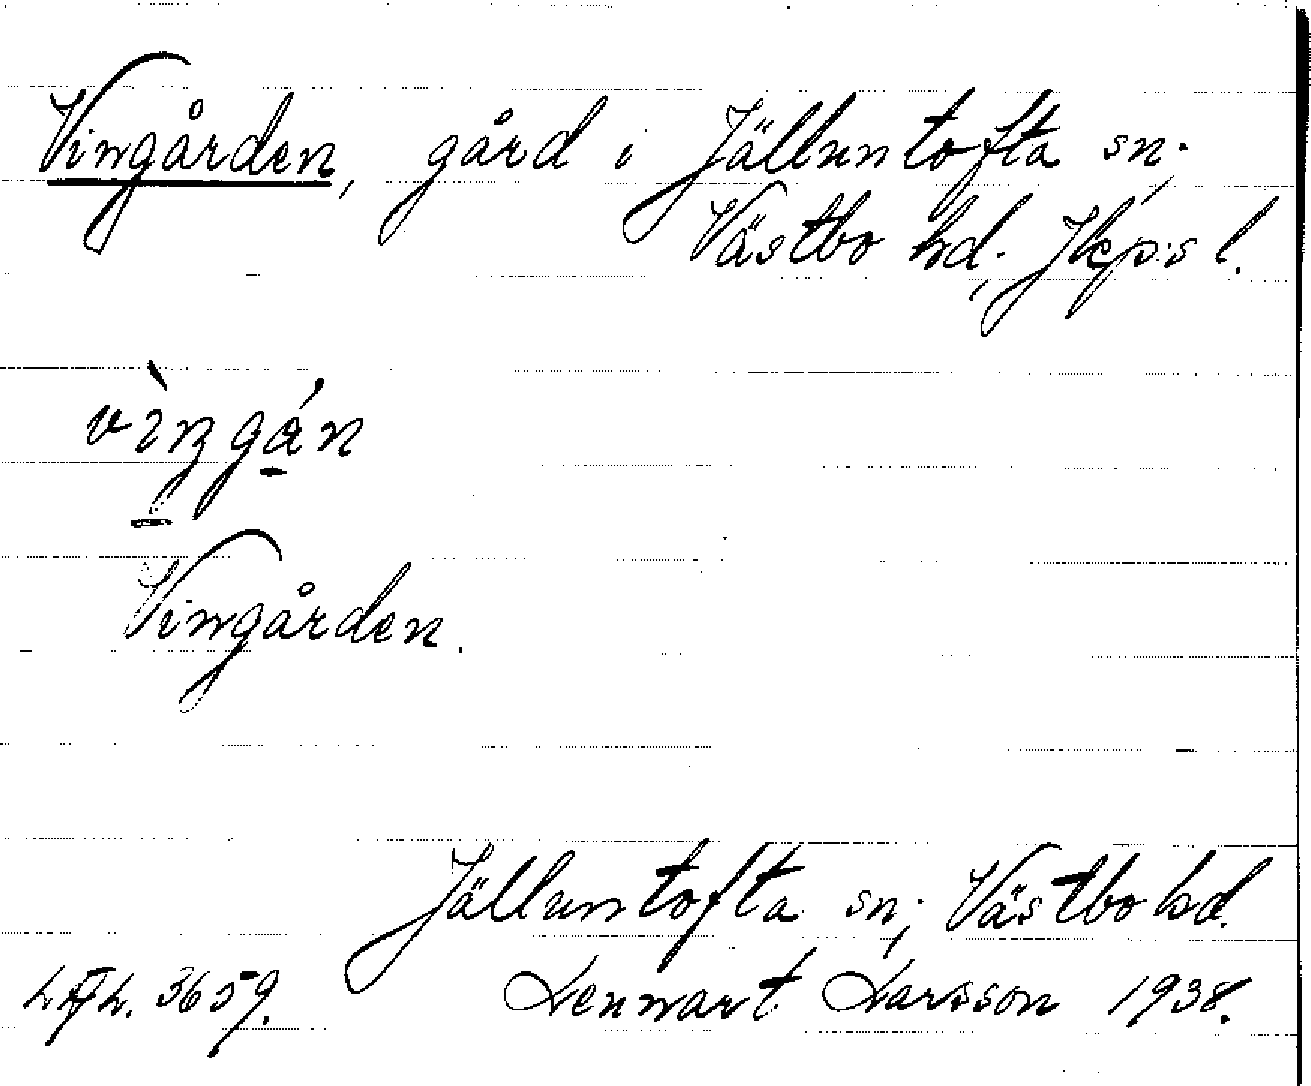 Vingården, gård i Jälluntofta sn.,
Västbo hd., Jkp:s l.
Vingården.
Jälluntofta sn., Västbo hd.
3659. Lennart Larsson 1938.